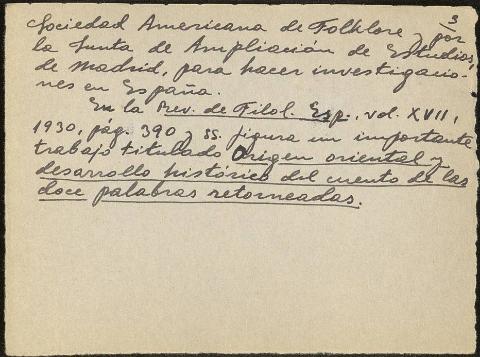 3
Sociedad Americana de Folklore y por
la Junta de Ampliación de Estudios,
de Madrid, para hacer investigacio-
nes en España.
En la Rev. de Filol. Esp., vol. XVII,
1930, pág. 390 y ss. figura un importante
trabajo titulado Origen oriental y
desarrollo histórico del cuento de las
doce palabras retorneadas.